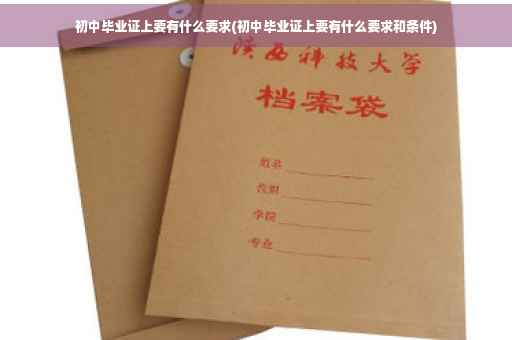 初中毕业证上要有什么要求(初中毕业证上要有什么要求和条件)
陕西科技大学
档案袋
姓名
学院
专业